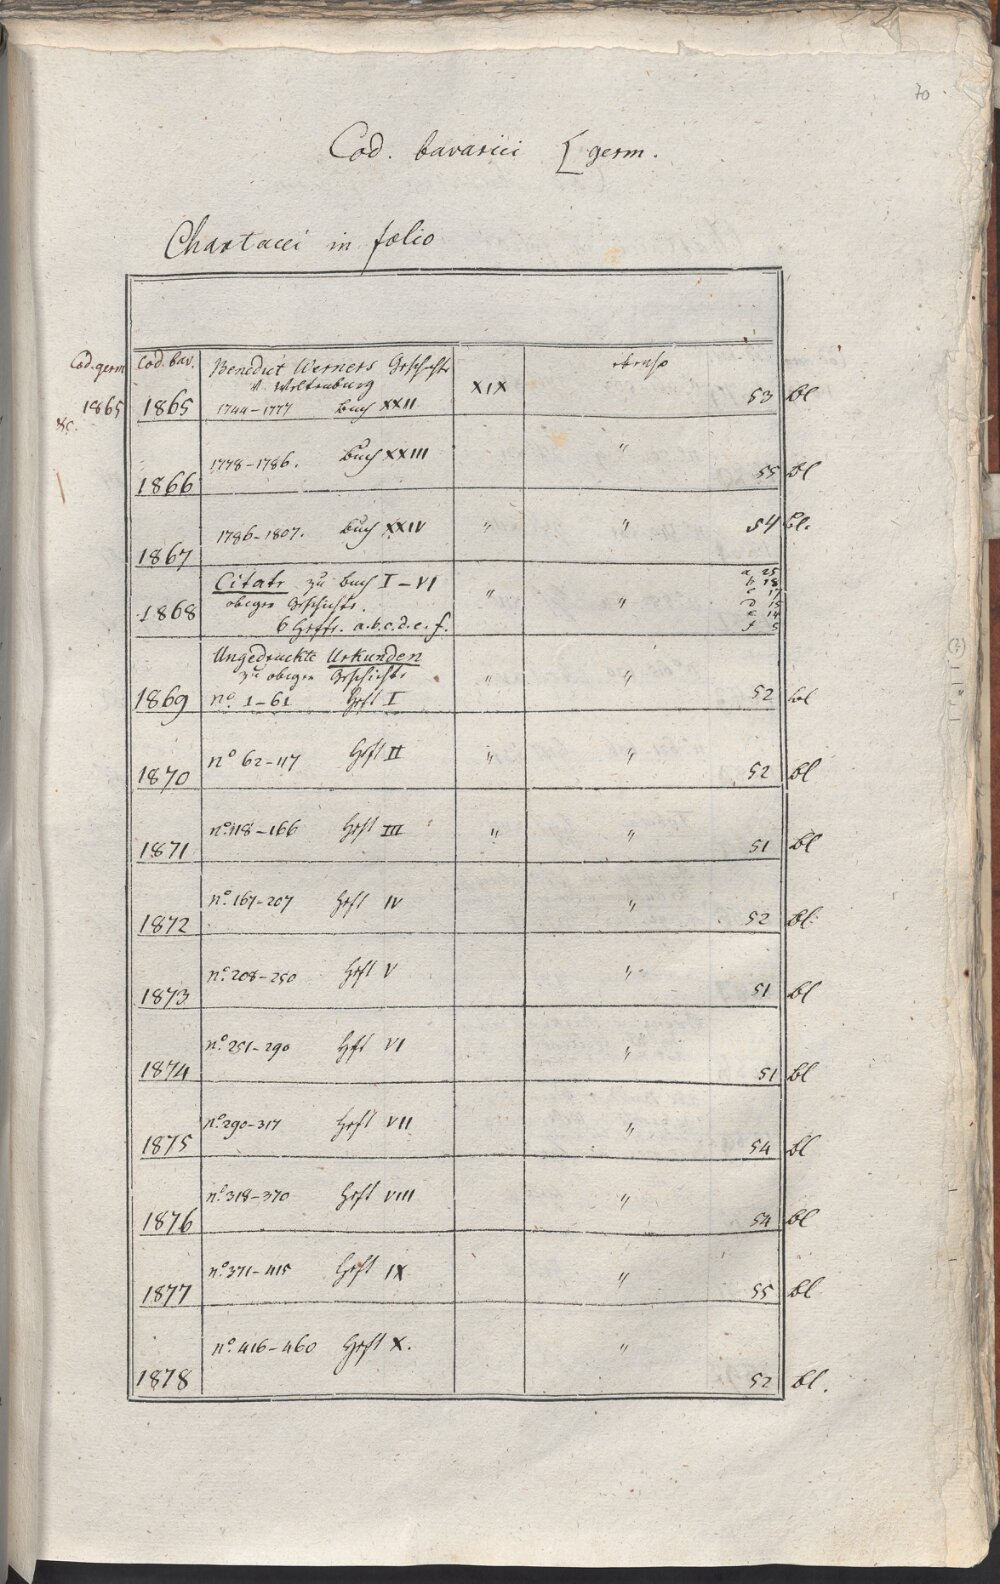 70
Cod. bavarici [ germ.
Chartacei in folio
Cod. germ
1865
&c.
Cod. bav.
1865
Benedict Werners Geschichte
v. Weltenburg
1744-1777 Buch XXII
XIX
ebenso
53 bl
1866
1778-1786. Buch XXIII
"
55 bl
1867
1786-1807. Buch XXIV
" "
54 bl.
1868
Citate zu Buch I-VI
obiger Geschichte.
6 Hefte. a.b.c.d.e.f.
" "
a 25
b 18
c 17
d 15
e 14
f 5
1869
Ungedruckte Urkunden
zu obiger Geschichte
no. 1-61 Heft I
" "
52 bl
1870
no 62-117 Heft II
" "
52 bl
1871
no. 118-166 Heft III
" "
51 bl
1872
no. 167-207 Heft IV
"
52 bl.
1873
no. 208-250 Heft V
"
51 bl
1874
no. 251-290 Hft VI
"
51 bl
1875
no. 290-317 Heft VII
"
54 bl
1876
no. 318-370 Heft VIII
"
54 bl
1877
no. 371-415 Heft IX
"
55 bl
1878
no. 416-460 Heft X.
"
52 bl.